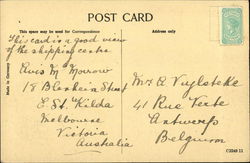 POST CARD
This space may be used for Correspondence
Address only
This card is a good view
of the shipping centre
Elvis M Morrow
18 Blenheim Street
E St. Kilda
Melbourne
Victoria
Australia
Mr A Vuylsteke
41 Rue Verte
Antwerp
Belgium
Made in Germany